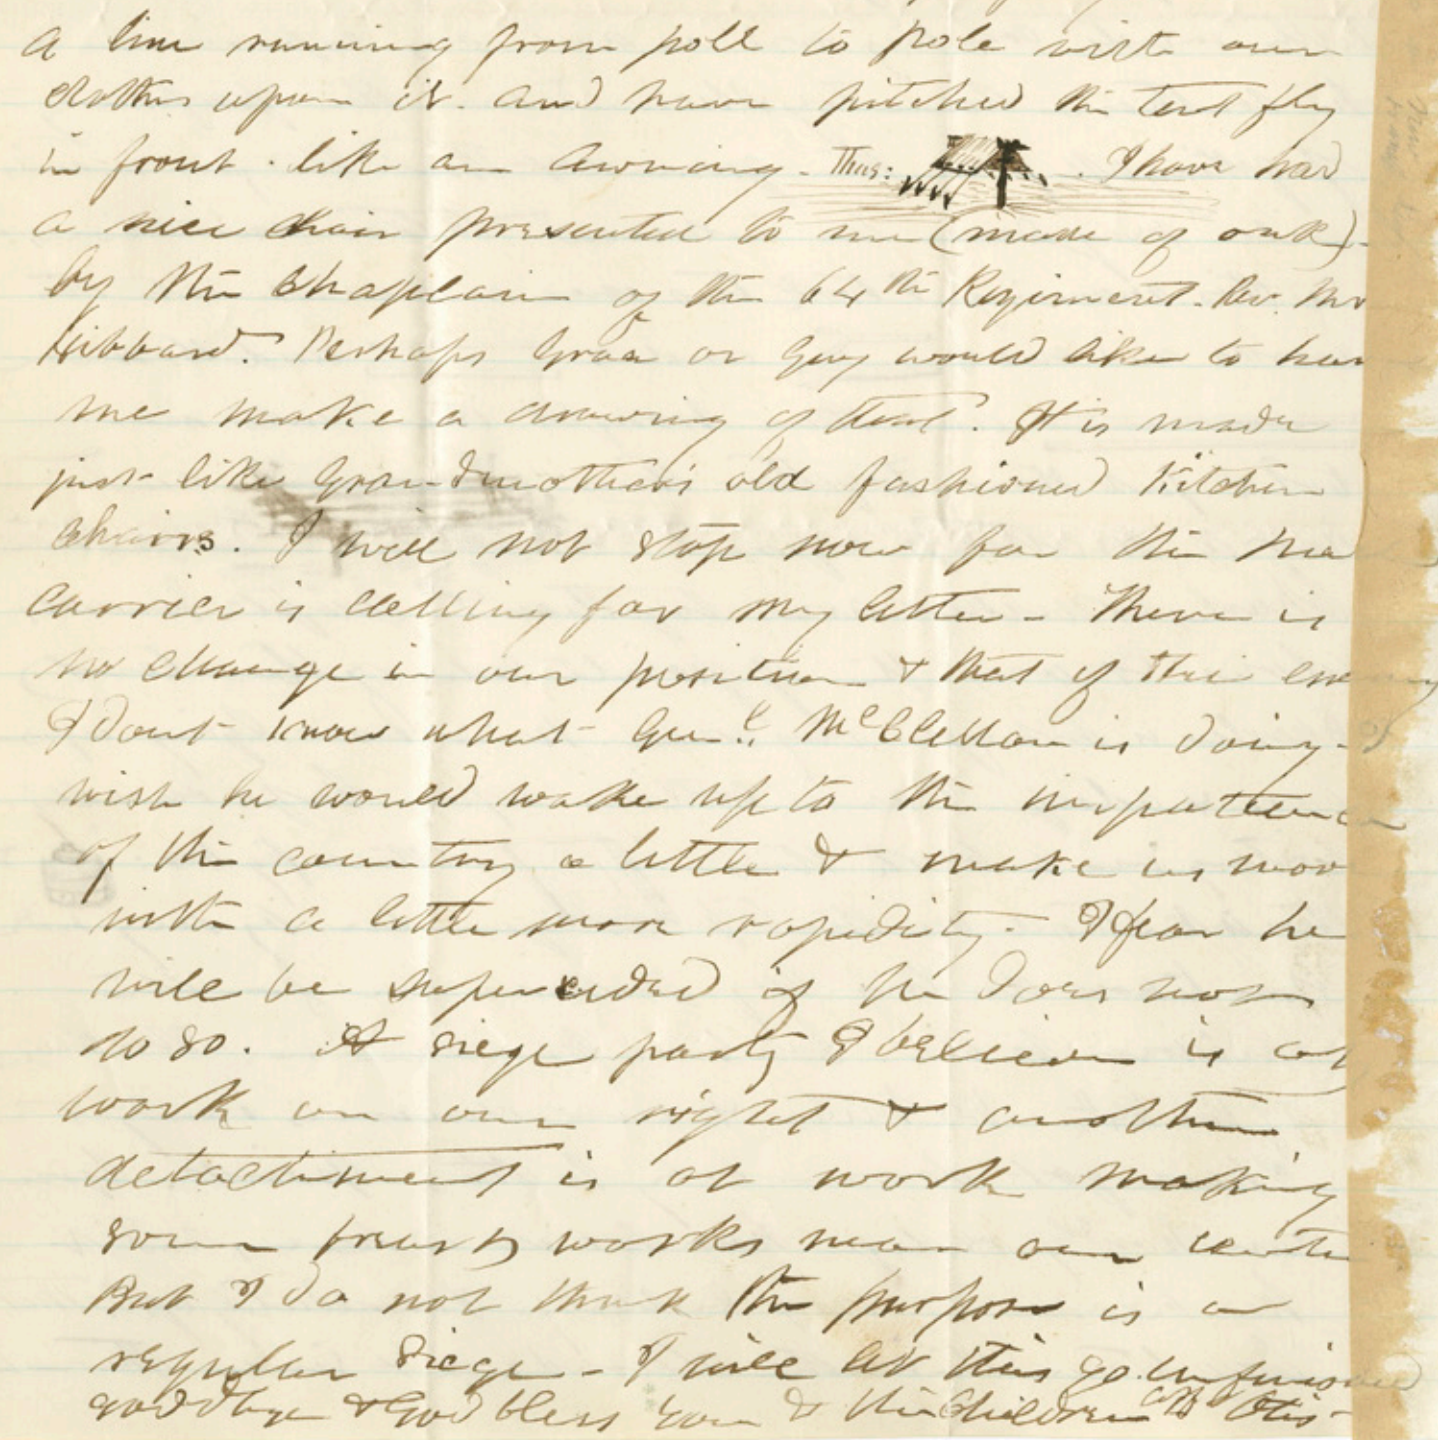 a line running from poll to pole with our
clothes upon it. and have pitched the tent fly
in front. like an awning. Thus: . I have had
a nice chair presented to me (made of oak)
by the Chaplain of the 64th Regiment. Rev. Mr
Hibbard. Perhaps Grace or Guy would like to have
me make a drawing of that? It is made
just like Grandmother's old fashioned Kitchen
chairs. I will not stop now for the
carrier is calling for my letter - There is
no change in our position & that of the enemy
I dont know what Genl. McClellan is doing-
wish he would wake up to the impatience
of the country a little & make us mov
with a little more rapidity. I fear he
will be superseded if he does not
do so. A siege party I believe is at
work on our right & another
detachment is at work making
some breast works near our cente
But I do not think the purpose is a
regular siege - I will let this go. unfinished
goodbye & God bless you & the Children Otis